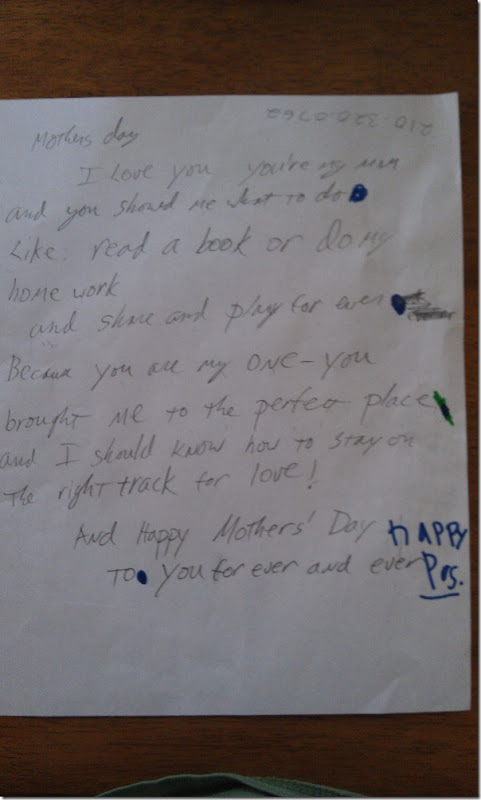 210-320-0762
Mothers day
I Love you you're my mom
and you showed me what to do
Like: read a book or Do my
home work
and share and play for ever
Because you are my one-you
brought me to the perfect place
and I should know how to stay on
The right track for love!
And Happy Mothers' Day HAPPY
To you for ever and ever Pos.